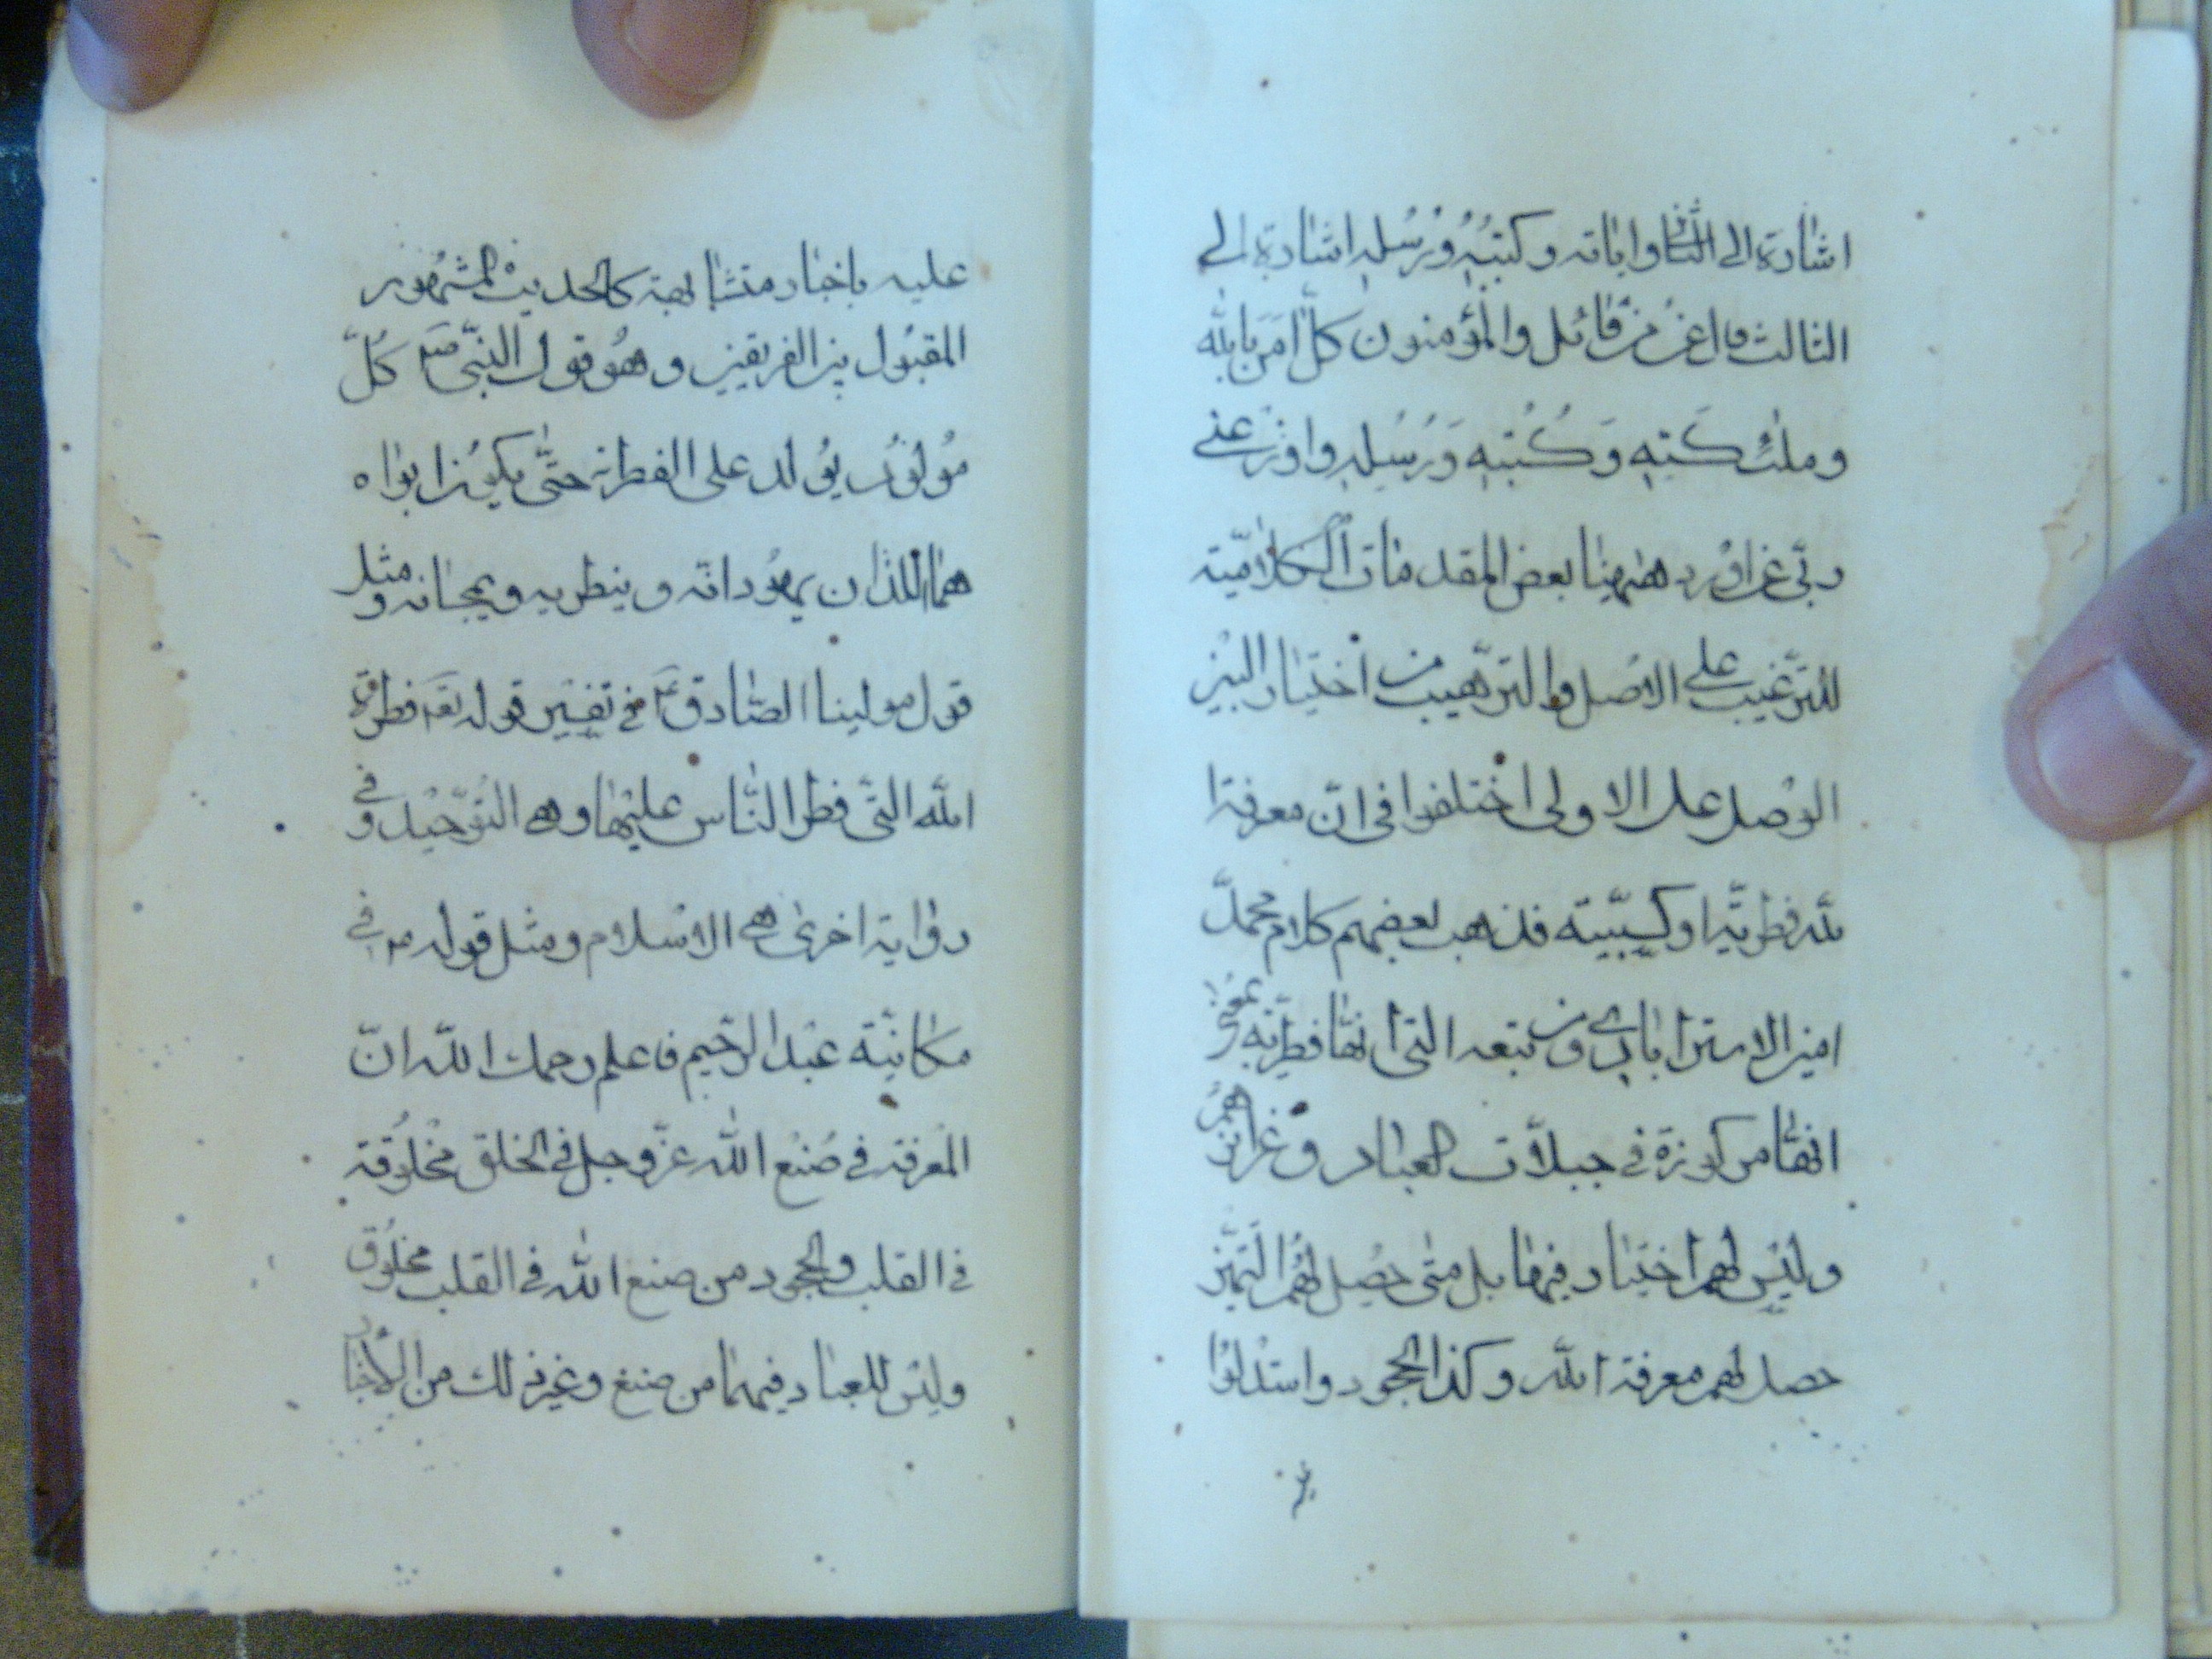 اشارة الى الثانى واياته وكتبه ورسله اشارة الى
الثالث قال عز من قائل والمؤمنون كل امن بالله
وملئكته وكتبه ورسله واوزعنى
ربى عن اورد ههنا بعض المقدمات الكلامية
للترغيب على الاصل والترهيب من اختيار البين
الوصل على الاولى اختلفوا فى ان معرفة ا
لله فطرية او كسبية فذهب بعضهم كلام محمد
امين الاسترابادى ومن تبعه التى انها فطرية بمعنى
انها مركوزة فى جبلات العباد وغرائزهم
وليس لهم اختيار فيها بل متى حصل لهم التميز
حصل لهم معرفة الله وكذا الجحود واستدلوا
عليه باخبار متشابهة كالحديث المشهور
المقبول بين الفريقين وهو قول النبى صم كل
مولود يولد على الفطرة حتى يكون ابواه
هما اللذان يهودانه وينصرانه ويمجسانه ومثل
قول مولينا الصادق ع فى تفسير قوله تعم فطرة
الله التى فطر الناس عليها وهى التوحيد وفى
رواية اخرى هى الاسلام ومثل قوله ع م فى
مكاتبة عبد الرحيم فاعلم رحمك الله ان
المعرفة فى صنع الله عز وجل فى الخلق مخلوقة
فى القلب والجحود من صنع الله فى القلب مخلوق
وليس للعباد فيهما من صنع وغير ذلك من الاخبار